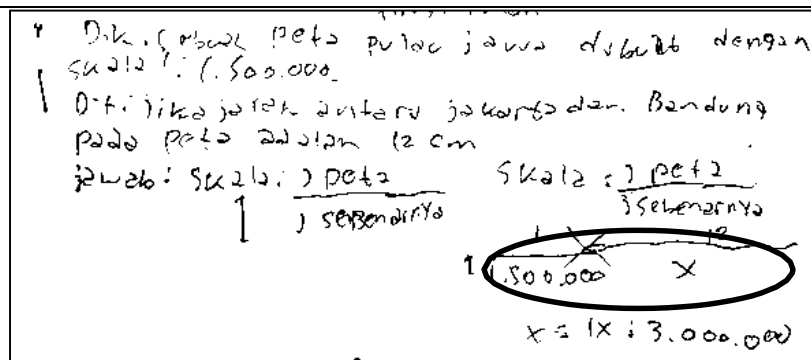 Dik : Sebuah peta pulau jawa dibuat dengan
skala 1: 1.500.000
Dit : jika jarak antara jakarta dan Bandung
pada peta adalah 12 cm
jawab : Skala : j peta Skala : j peta
j sebenarnya j sebenarnya
1 12
1 1.500.000 x
x = 1x : 3.000.000